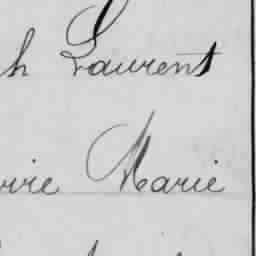 h Laurent
Marie